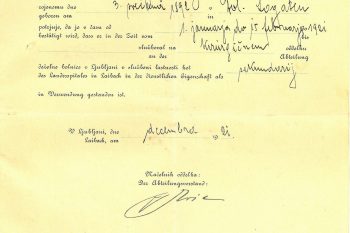 rojenemu dne 3. 1920 Dol. Logatec
geboren am
potrjuje, da je v času od 1. januarja do 15. februarja 1921
bestätigt wird, dass er in der Zeit vom
služboval na kirurgičnem oddelku
hat an der Abteilung
deželne bolnice v Ljubljani v službeni lastnosti kot
des Landesspitales in Laibach in der dienstlichen Eigenschaft als
in Verwendung gestanden ist.
V Ljubljani, dne decembra 21.
Laibach, am
Načelnik oddelka:
Der Abteilungsvorstand: